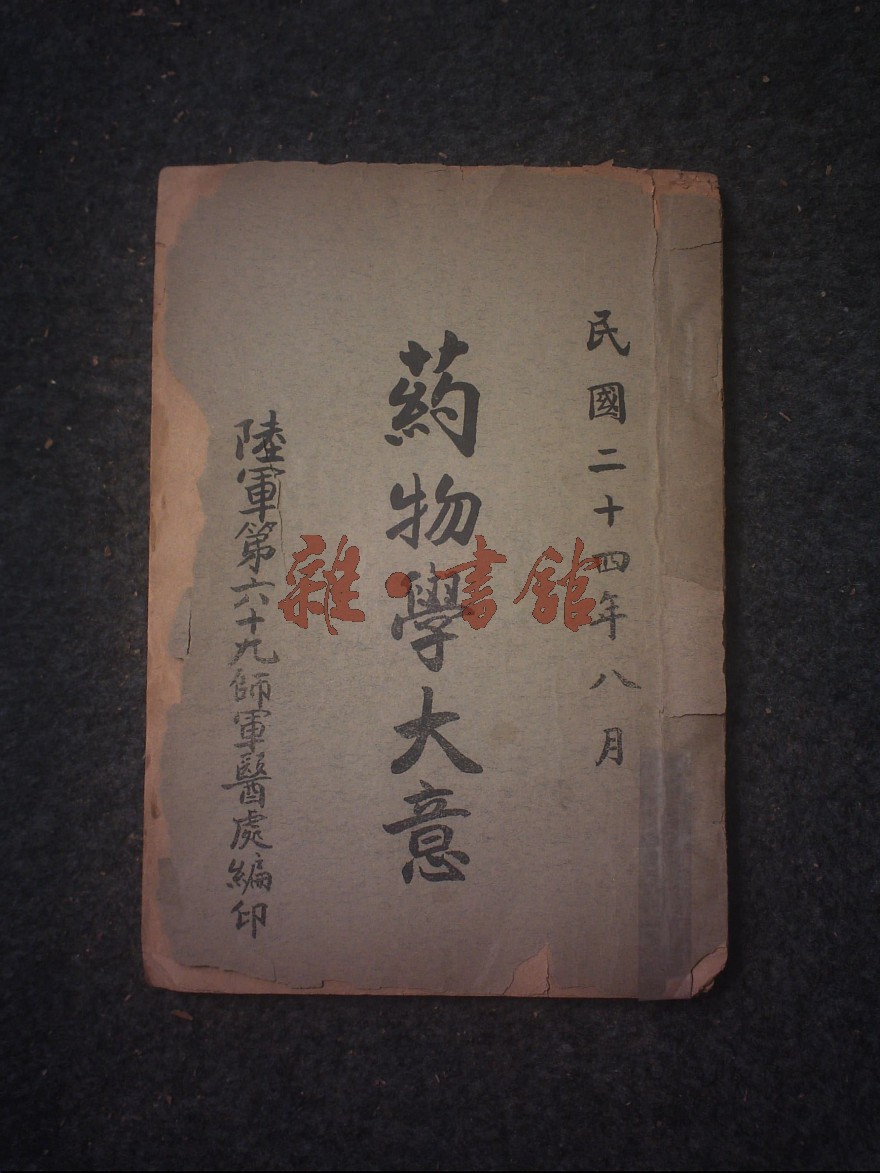 民國二十四年八月
葯物學大意
陸軍第六十九師軍醫處編印
雜·書館